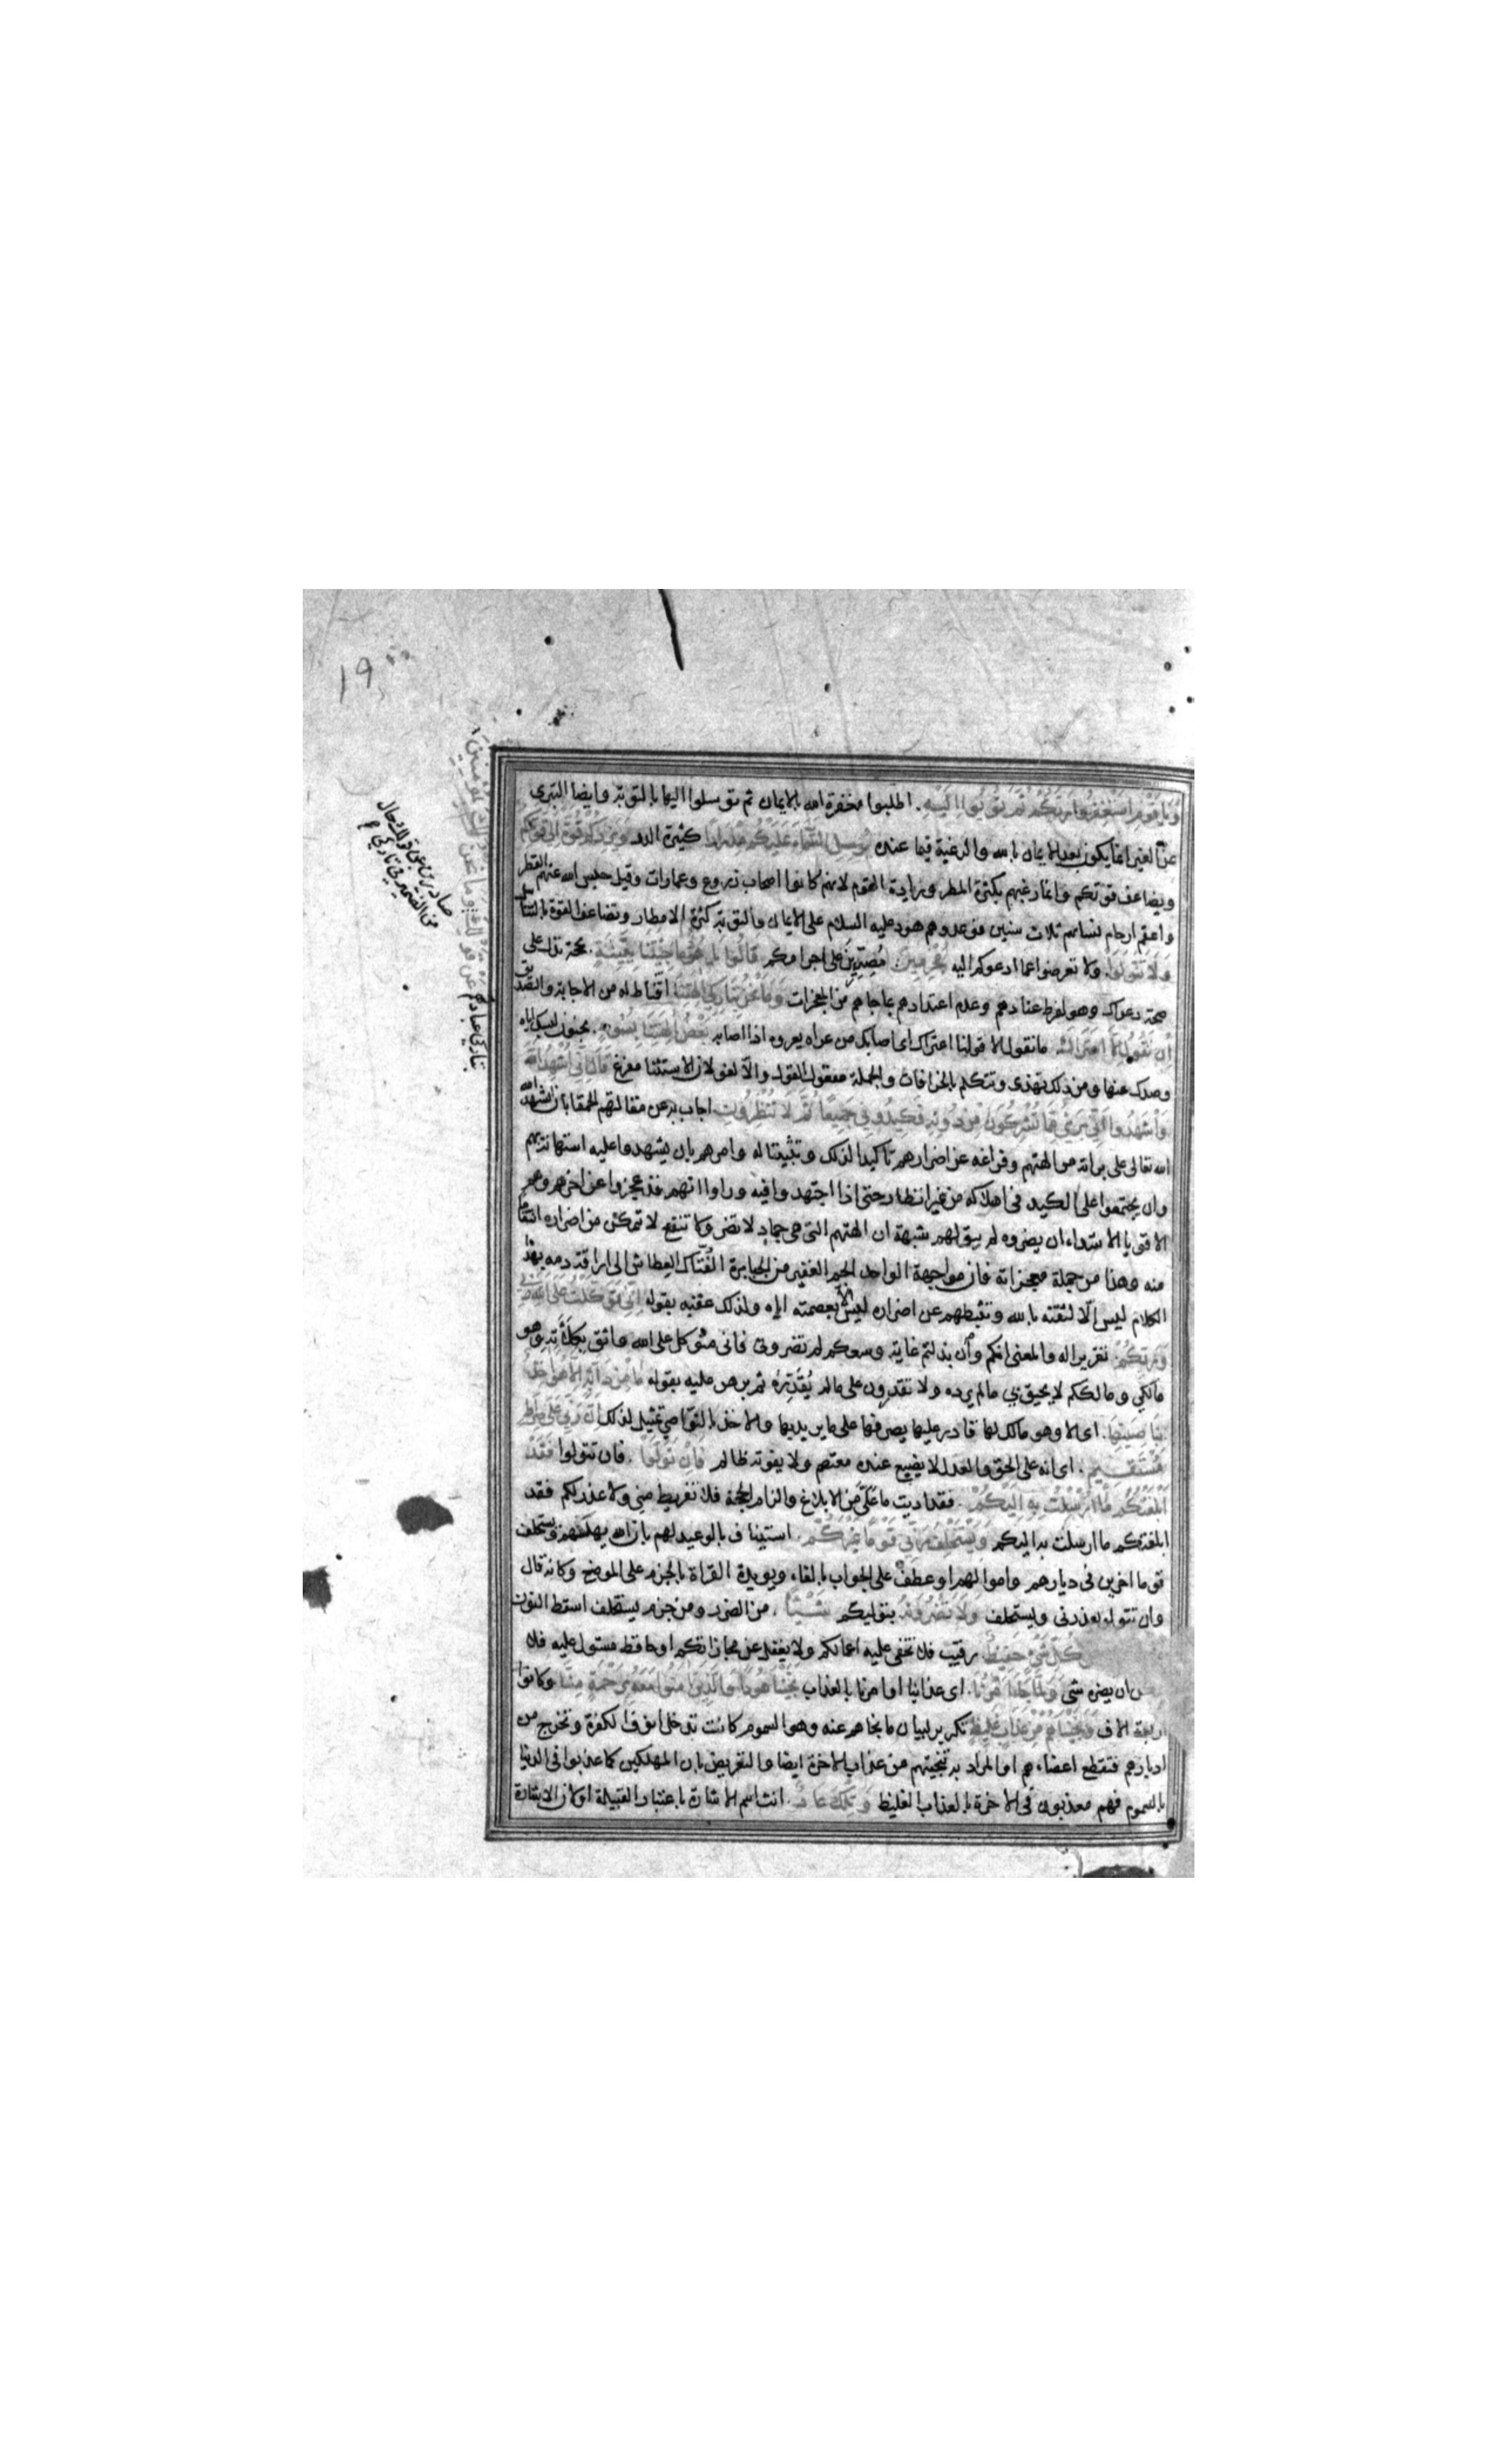 ١٩
وَيَا قَوْمِ اسْتَغْفِرُوا رَبَّكُمْ ثُمَّ تُوبُوا اِلَيْهِ. اطلبوا مغفرة الله بالايمان ثم توسلوا اليها بالتوبة وايضا التبرى
عن الغير انما يكون بعد الايمان بالله والرغبة فيما عنده يُرْسِلِ السَّمَاءَ عَلَيْكُمْ مِدْرَارًا كثيرة الدر وَيَزِدْكُمْ قُوَّةً اِلَى قُوَّتِكُمْ
ويضاعف قوتكم وانما رغبهم بكثرة المطر وزيادة القوم لانهم كانوا اصحاب زروع وعمارات وقيل حبس الله عنهم القطر
واعقم ارحام نسائهم ثلاث سنين فوعدوهم هود عليه السلام على الايمان والتوبة كثرة الامطار وتضاعف القوة بالتناسل
وَلَا تَتَوَلَّوْا. ولا تعرضوا عما ادعوكم اليه مُجْرِمِينَ. مُصِرِّينَ على اجرامكم قَالُوا يَا هُودُ مَا جِئْتَنَا بِبَيِّنَةٍ. بحجة تدل على
صحة دعواك وهو لفرط عنادهم وعدم اعتدادهم بما جاهم من المعجزات وَمَا نَحْنُ بِتَارِكِي آلِهَتِنَا اقناط له من الاجابة والتصديق
اِنْ نَقُولُ اِلَّا اعْتَرَاكَ. ما نقول الا قولنا اعتراك اى اصابك من عراه يعروه اذا اصابه بَعْضُ آلِهَتِنَا بِسُوءٍ. بجنون لسبك اياه
وصدك عنها ومن ذلك تهذى وتتكلم بالخرافات والجملة مفعول القول والا لغو لان الاستثنا مفرغ قَالَ اِنِّي اُشْهِدُ اللهَ
وَاشْهَدُوا اَنِّي بَرِيءٌ مِمَّا تُشْرِكُونَ مِنْ دُونِهِ فَكِيدُونِي جَمِيعًا ثُمَّ لَا تُنْظِرُونِ. اجاب به عن مقالتهم الحمقا بان اشهد الله
الله تعالى على براته من الهتهم وفراغه عن اضرارهم تاكيدا لذلك وتثبيتا له وامرهم بان يشهدوا عليه استهانة بهم
وان يجتمعوا على الكيد فى اهلاكه من غير انظار حتى اذا اجتهدوا فيه وراوا انهم قد عجزوا عن اخرهم وهم
الاقويا الاشداء ان يضروه لم يبق لهم شبهة ان الهتهم التى هى جماد لا تضر ولا تنفع لا تتمكن من اضراره انتقاما
منه وهذا من جملة معجزاته فان مواجهة الواحد الجم الغفير من الجبابرة الفُتّاك العِطاش الى اراقة دمه بهذا
الكلام ليس الّا لثقته بالله وتثبطهم عن اضراره ليس الا بعصمته اياه ولذلك عقبه بقوله اِنِّي تَوَكَّلْتُ عَلَى اللهِ رَبِّي
وَرَبِّكُمْ. تقريرا له والمعنى انكم وان بذلتم غاية وسعكم لم تضرونى فانى متوكل على الله واثق بكلاءته وهو
مالكى ومالككم لا يحيق بى ما لم يرده ولا تقدرون على ما لم يُقَدِّرْهُ ثم برهن عليه بقوله مَا مِنْ دَابَّةٍ اِلَّا هُوَ آخِذٌ
بِنَاصِيَتِهَا. اى الا وهو مالك لها قادر عليها يصرفها على ما يريد بها والاخذ بالنواصي تمثيل لذلك اِنَّ رَبِّي عَلَى صِرَاطٍ
مُسْتَقِيمٍ. اى انه على الحق والعدل لا يضيع عنده معتصم ولا يفوته ظالم فَاِنْ تَوَلَّوْا. فان تتولوا فَقَدْ
اَبْلَغْتُكُمْ مَا اُرْسِلْتُ بِهِ اِلَيْكُمْ. فقد اديت ما عَلَيَّ مِن الابلاغ والزام الحجة فلا تفريط منى ولا عذر لكم فقد
ابلغتكم ما ارسلت به اليكم وَيَسْتَخْلِفُ رَبِّي قَوْمًا غَيْرَكُمْ. استيناف بالوعيد لهم بان الله يهلكهم ويستخلف
قوما اخرين فى ديارهم واموالهم او عطف على الجواب بالفاء ويويده القراة بالجزم على الموضع وكانه قال
وان تتولوا يعذرنى ويستخلف وَلَا تَضُرُّونَهُ بتوليكم شَيْئًا. من الضرر ومن جزم يستخلف اسقط النون
كُلِّ شَيْءٍ حَفِيظٌ رقيب فلا تخفى عليه اعمالكم ولا يغفل عن مجازاتكم او حافظ مستول عليه فلا
ان يضره شى وَلَمَّا جَاءَ اَمْرُنَا. اى عذابنا او امرنا بالعذاب نَجَّيْنَا هُودًا وَالَّذِينَ آمَنُوا مَعَهُ بِرَحْمَةٍ مِنَّا وكانوا
اربعة الاف وَنَجَّيْنَاهُمْ مِنْ عَذَابٍ غَلِيظٍ تكرير لبيان ما نجاهم عنه وهو السموم كانت تدخل انوف الكفرة وتخرج من
ادبارهم فتقطع اعضاءهم او المراد به تنجيتهم من عذاب الاخرة ايضا والتعريض بان المهلكين كما عذبوا فى الدنيا
بالسموم فهم معذبون فى الاخرة بالعذاب الغليظ وَتِلْكَ عَادٌ. انث اسم الاشارة باعتبار القبيلة او لان الاشارة
تاركي عبادتهم عَنْ قَوْلِكَ
صادرين عن قولك حال
من الضمير فى تاركي